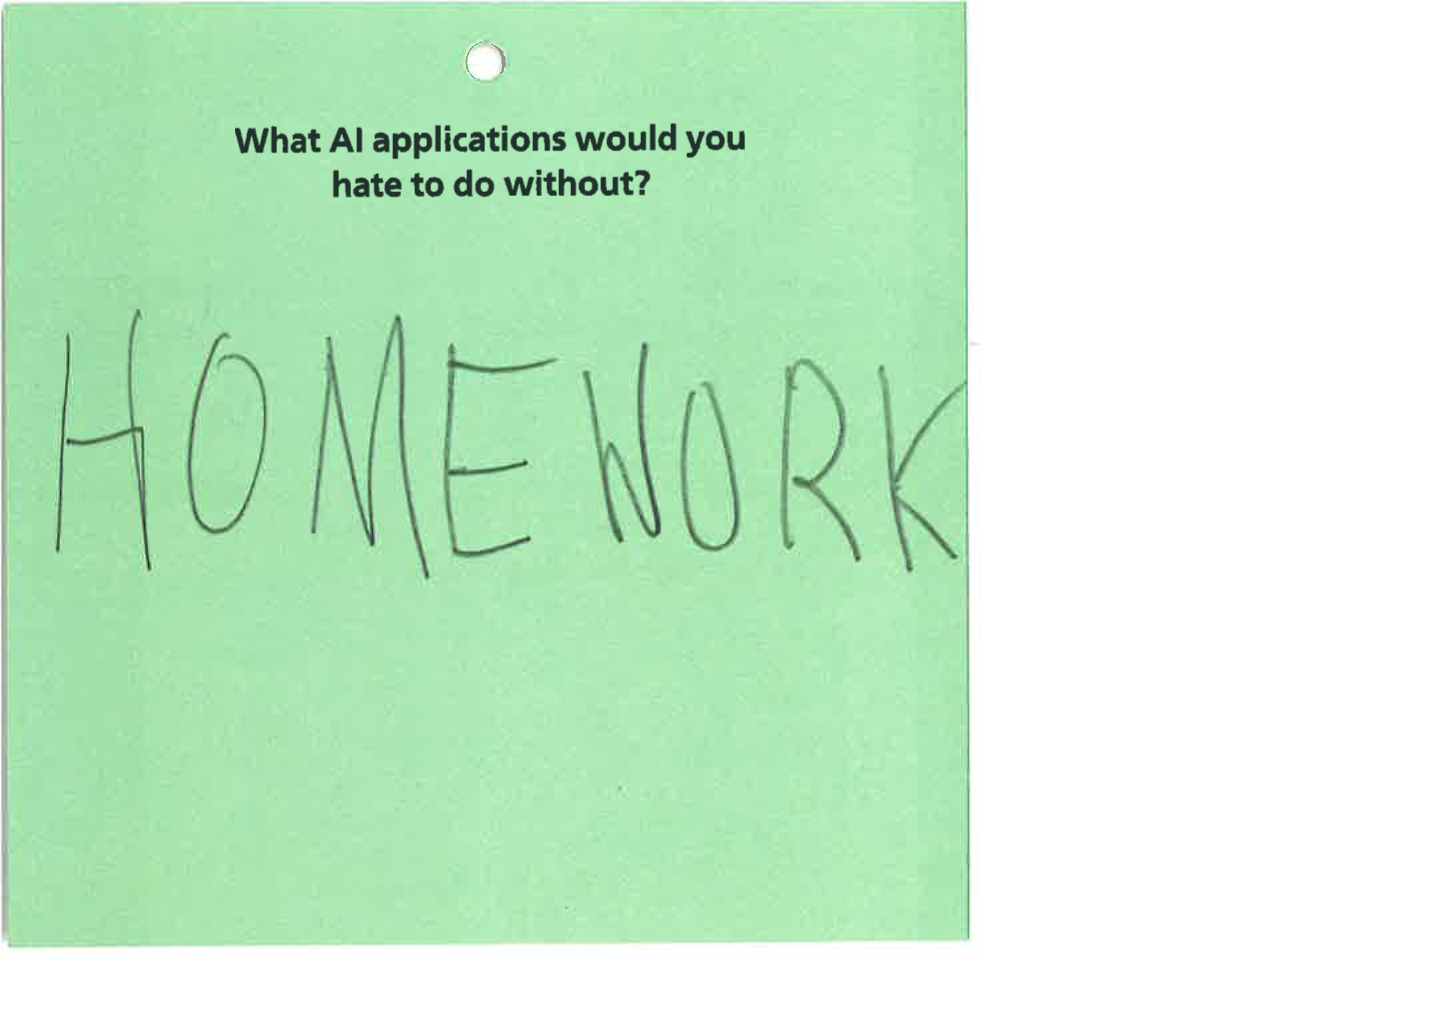 What AI applications would you
hate to do without?
HOMEWORK